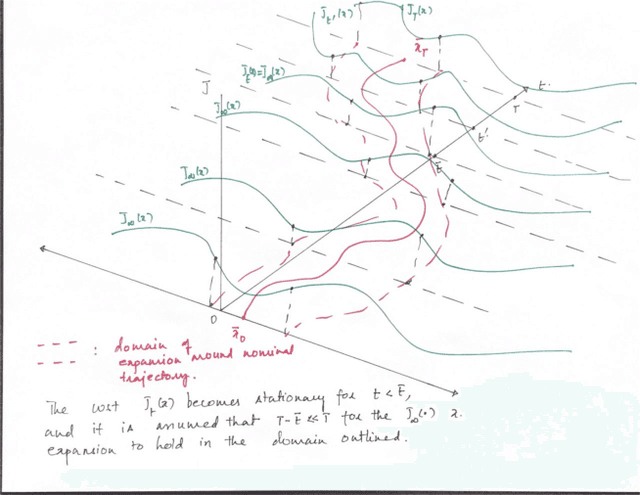 J_t'(x)
J_T(x)
x_T
J_t̄(x)=J_∞(x)
t
T
J
J_∞(x)
t'
t̄
J_∞(x)
J_∞(x)
O
x̄_0
: domain of
expansion around nominal
trajectory.
The cost J_t(x) becomes stationary for t < t̄,
and it is assumed that T-t̄ << T for the J_∞(•)
x.
expansion to hold in the domain outlined.